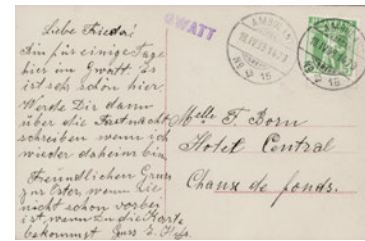 Liebe Frieda!
Bin für einige Tage
hier im Gwatt, es
ist sehr schön hier.
Werde Dir dann
über die Fastnacht
schreiben wenn ich
wieder daheim bin.
Freundlichen Gruss
zur Ostern, wenn sie
nicht schon vorbei
ist, wenn Du die Karte
bekommst Gruss E.
GWATT
AMBULANT
Nº
Melle F. Born
Hotel Central
Chaux de fonds.